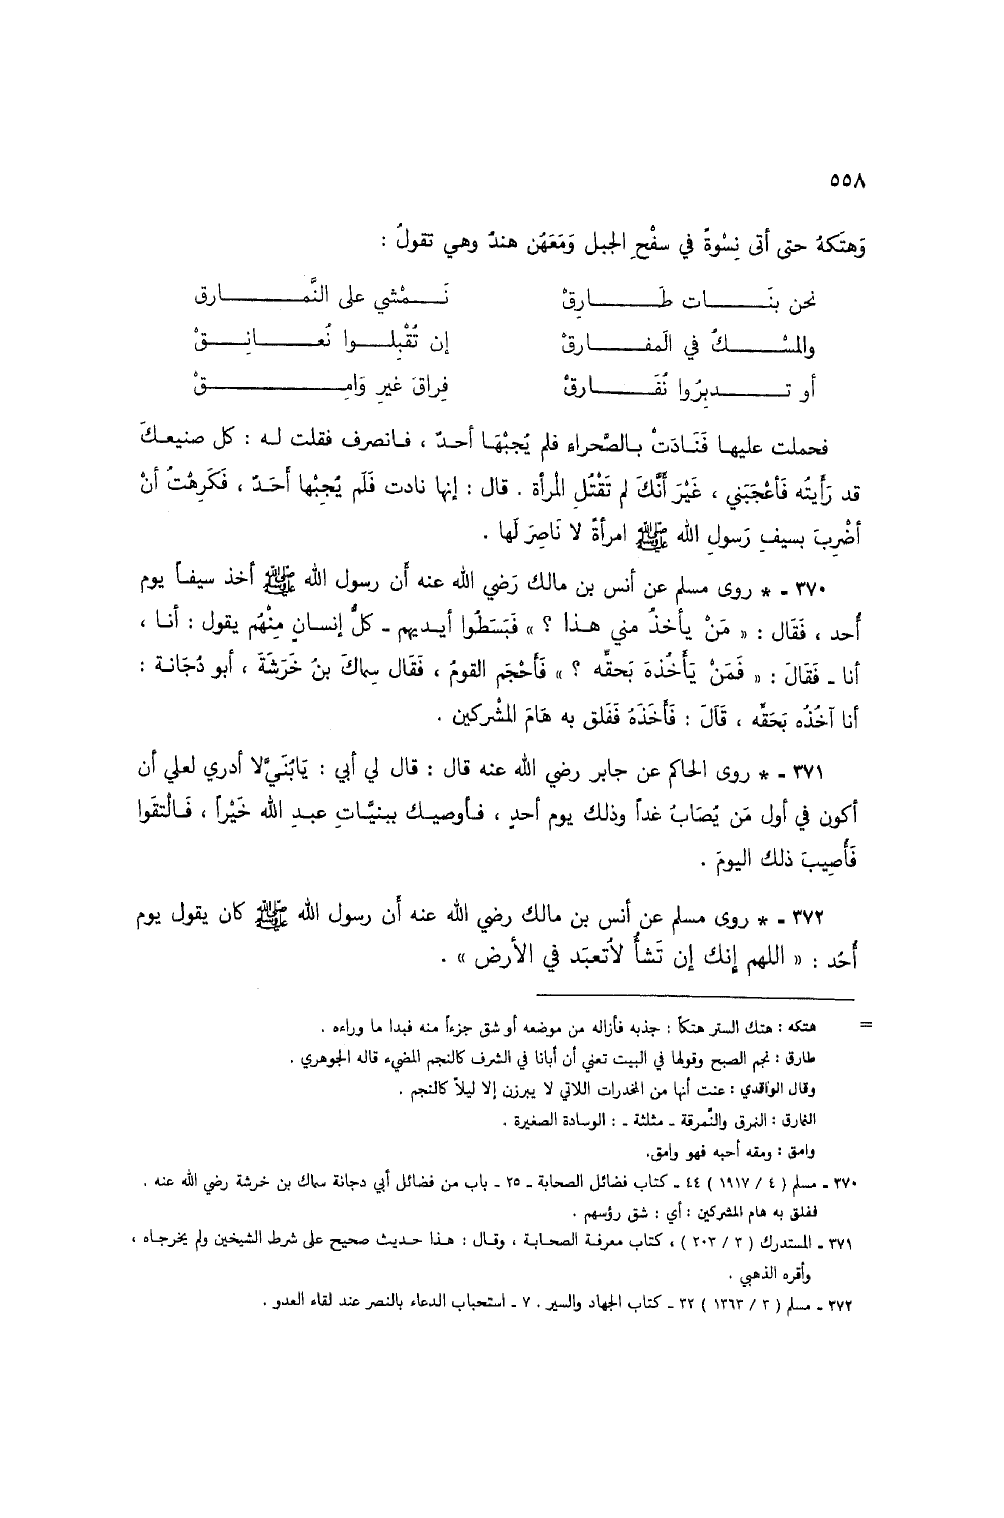 ٥٥٨
وَهتَكهُ حتى أتى نِسْوةً في سفْحِ الجبل وَمَعَهُن هندٌ وهي تقولُ :
نحن بنَـات طَـارِقْ نَـمْشي على النَّمـارق
والمسْـكُ في الَمفـارقْ إن تُقْبِلـوا نُعـانِـقْ
أو تـدبِرُوا نُفَـارقْ فِراقَ غيرِ وَامِـقْ
فحملت عليها فَنَادَتْ بالصَّحراءِ فلم يُجبْهَا أحدٌ ، فانصرف فقلت له : كل صنيعكَ
قد رَأَيتُه فَأعْجَبَني ، غَيْرَ أنَّكَ لم تَقْتُلِ المْرأة . قال : إنها نادت فَلَم يُجِبْها أَحَدٌ ، فَكَرِهْتُ أنْ
أضْرِبَ بسيفِ رَسولِ الله ﷺ امرأةً لا نَاصِرَ لَها .
٣٧٠ - * روى مسلم عن أنس بن مالك رَضي الله عنه أَن رسول الله ﷺ أخذ سيفاً يوم
أُحد ، فَقَال : « مَنْ يأخذُ مني هذا ؟ » فَبَسَطُوا أيديهم - كلُّ إنسانٍ مِنْهُم يقول : أنا ،
أنا - فَقَالَ : « فَمَنْ يَأْخُذهَ بَحقِّه ؟ » فَأَحْجَم القومُ ، فَقَال سِماكَ بنُ خَرَشَةَ ، أبو دُجَانة :
أنا آخُذُه بَحَقِّه ، قَالَ : فَأخَذَهُ فَفَلق به هَامَ المشْركين .
٣٧١ - * روى الحاكم عن جابر رضي الله عنه قال : قال لي أبي : يَابُنَيَّ لا أدري لعلي أن
أكون في أول مَن يُصَابُ غداً وذلك يوم أحدٍ ، فأوصيك ببنيَّاتِ عبدِ الله خَيْراً ، فَالْتقَوا
فَأُصِيبَ ذلك اليومَ .
٣٧٢ - * روى مسلم عن أنس بن مالك رضي الله عنه أَن رسول الله ﷺ كان يقول يوم
أُحُد : « اللهم إِنك إن تَشأُ لاَتُعبَد في الأرض » .
= هتكه : هتك الستر هتكاً : جذبه فأزاله من موضعه أو شق جزءاً منه فبدا ما وراءه .
طارق : نجم الصبح وقولها في البيت تعني أن أبانا في الشرف كالنجم المضيء قاله الجوهري .
وقال الواقدي : عنت أنها من المخدرات اللاتي لا يبرزن إلا ليلاً كالنجم .
النمارق : النمرق والنَّمرقة - مثلثة - : الوسادة الصغيرة .
وامق : ومقه أحبه فهو وامق.
٣٧٠ - مسلم ( ٤ / ١٩١٧ ) ٤٤ - كتاب فضائل الصحابة - ٢٥ - باب من فضائل أبي دجانة سماك بن خرشة رضي الله عنه .
ففلق به هام المشركين : أي : شق رؤسهم .
٣٧١ - المستدرك ( ٣ / ٢٠٣ ) ، كتاب معرفة الصحابة ، وقال : هذا حديث صحيح على شرط الشيخين ولم يخرجاه ،
وأقره الذهبي .
٣٧٢ - مسلم ( ٣ / ١٣٦٣ ) ٣٢ - كتاب الجهاد والسير . ٧ - استحباب الدعاء بالنصر عند لقاء العدو .